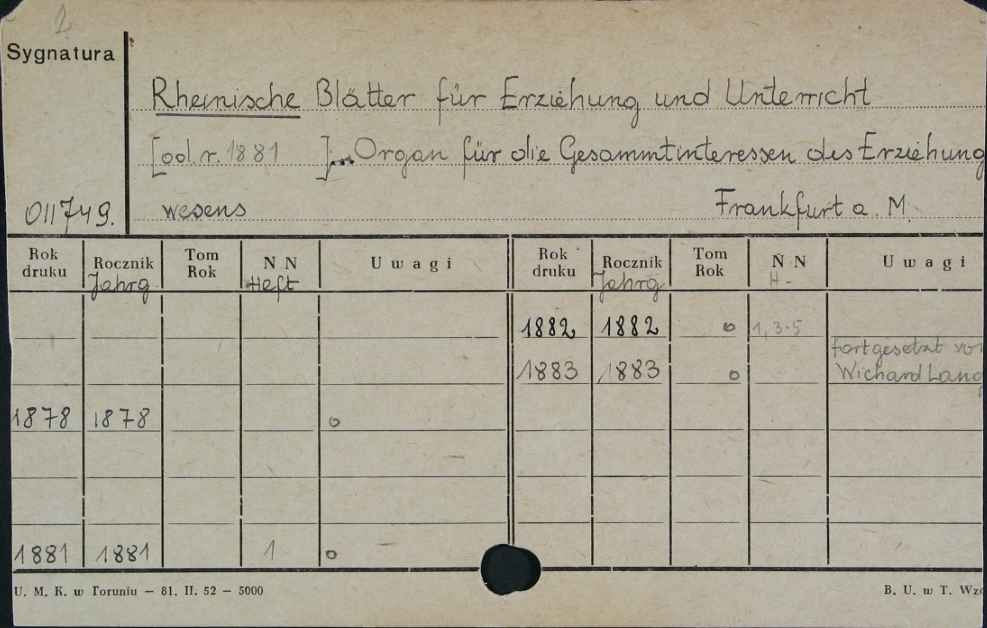 2
Sygnatura
Rheinische Blätter für Erziehung und Unterricht
[od r. 1881 ]... Organ für die Gesammtinteressen des Erziehung
011749. wesens Frankfurt a. M.
Rok druku Rocznik Jahrg Tom Rok N N Heft Uwagi Rok druku Rocznik Jahrg Tom Rok N N H- Uwagi
1882 1882 o 1, 3-5
fortgesetzt von
1883 1883 o Wichard Lang
1878 1878 o
1881 1881 1 o
U. M. K. w Toruniu — 81. II. 52 — 5000 B. U. w T.